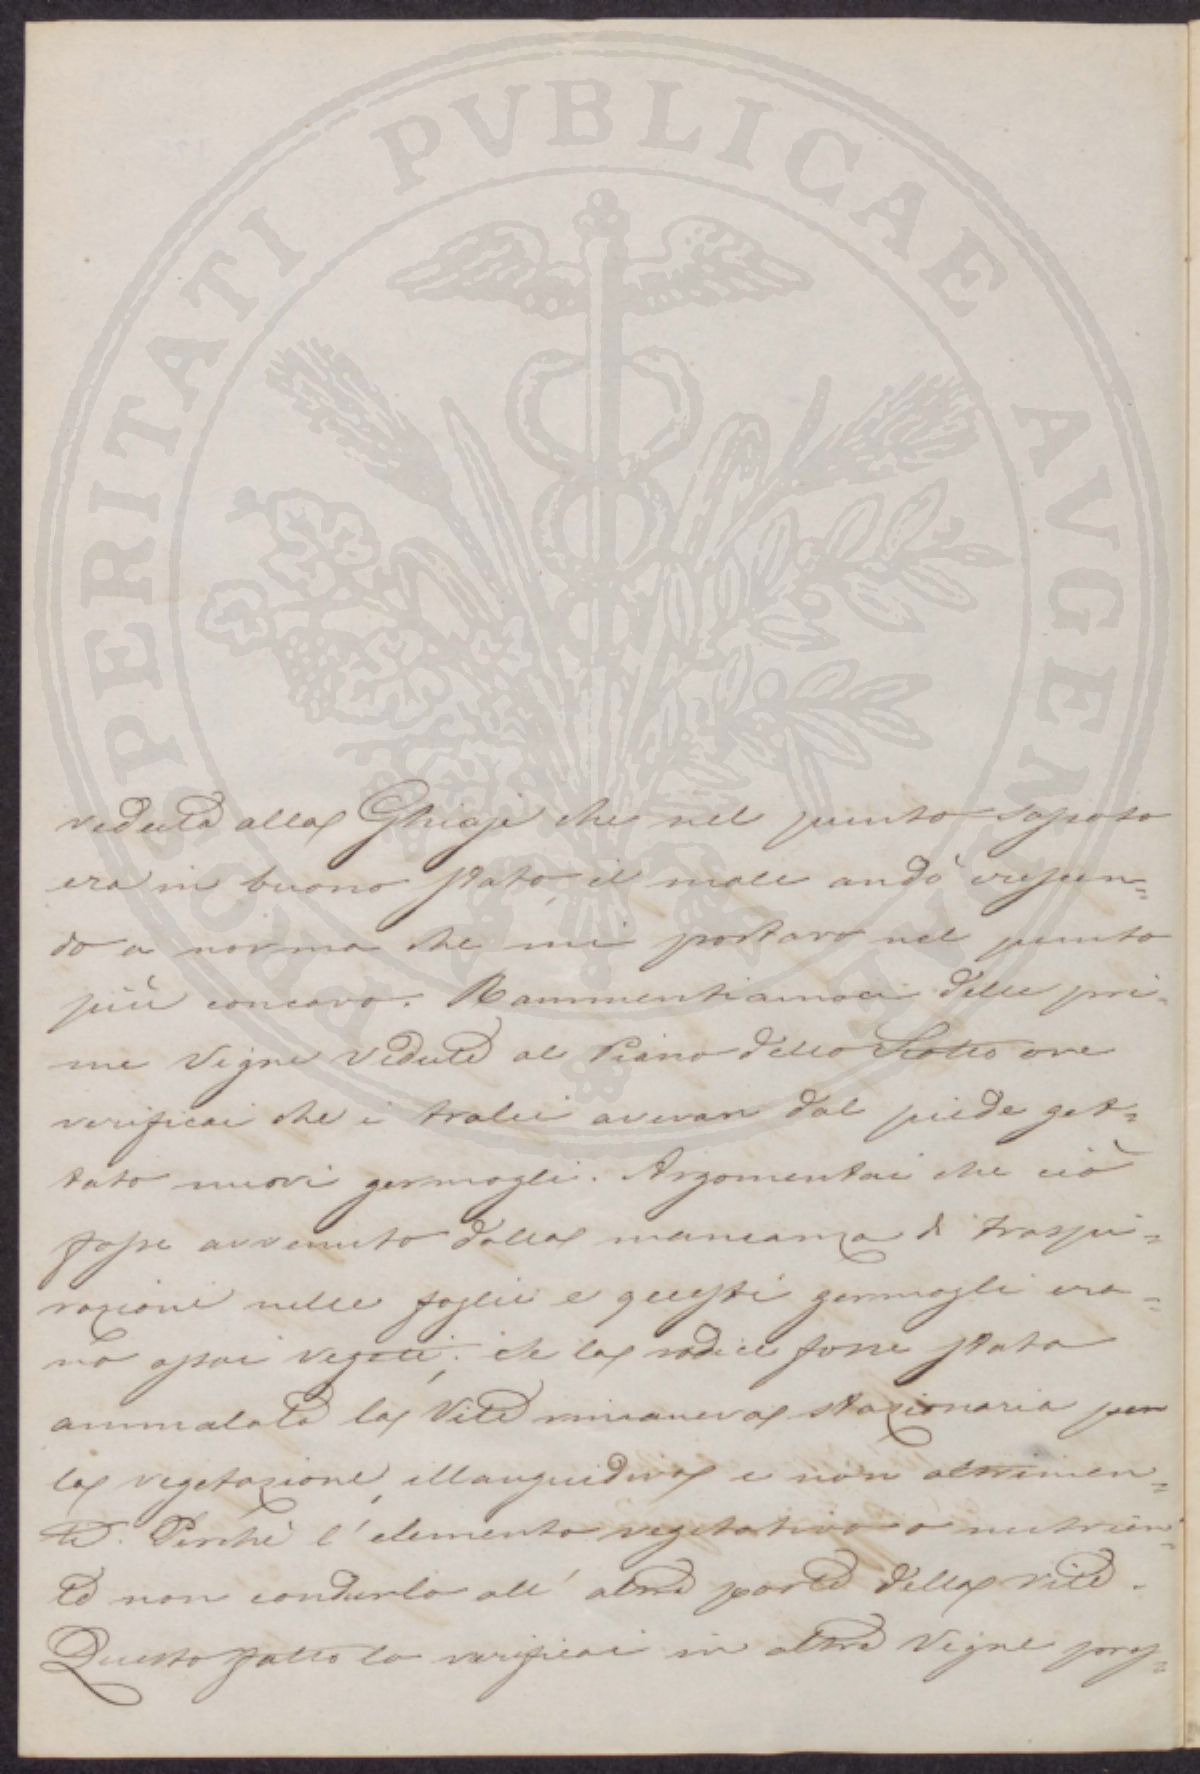 PROSPERITATI PVBLICAE AVGENDAE
vedute alla Ghiaje che nel punto esposto
era in buono stato, il male andò crescen=
do a norma che mi portavo nel punto
più concavo. Rammentiamoci delle pri=
me Vigne vedute al Piano dello Scotto ove
verificai che i tralci avevan dal piede get=
tato nuovi germogli. Argomentai che ciò
fosse avvenuto dalla mancanza di traspi=
razione nelle foglie e questi germogli era=
no assai vegeti; che la radice fosse stata
ammalata la Vite rimaneva stazionaria per
la vegetazione, illanguidiva e non altrimen=
ti. Perchè l'elemento vegetativo o nutrien=
te non condurlo all'altre parte della vite.
Questo fatto lo verificai in altre Vigne pros=